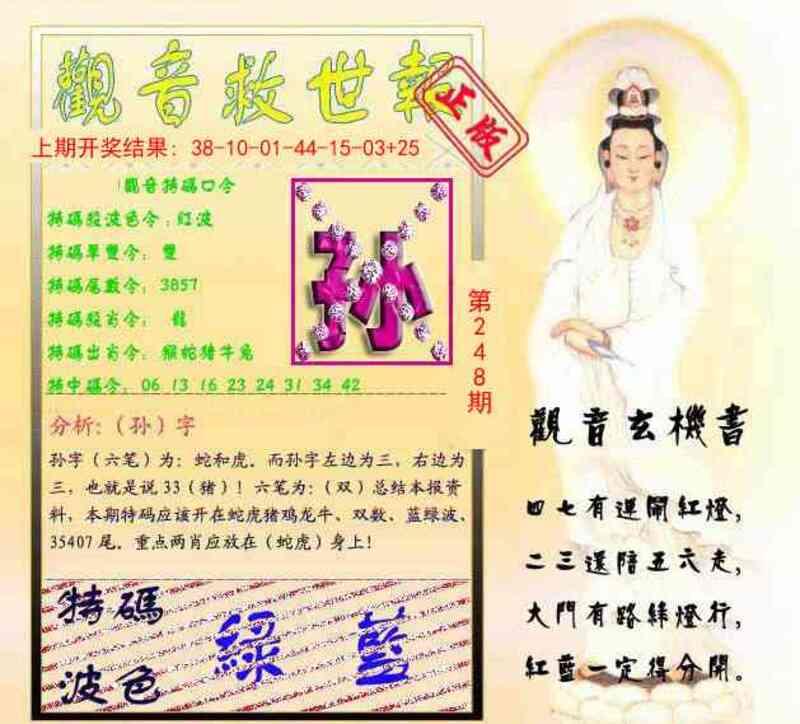 觀音救世報
正版
上期开奖结果：38-10-01-44-15-03+25
觀音特碼口令
特碼殺波色令：红波
特碼單雙令： 雙
特碼尾數令： 3857
特碼殺肖令： 龍
特碼出肖令： 猴蛇猪牛兔
特中碼令： 06 13 16 23 24 31 34 42
孙
第248期
分析：（孙）字
孙字（六笔）为：蛇和虎。而孙字左边为三，右边为
三，也就是说33（猪）！六笔为：（双）总结本报资
料，本期特码应该开在蛇虎猪鸡龙牛、双数、蓝绿波、
35407尾。重点两肖应放在（蛇虎）身上！
特碼
波色
綠 藍
觀音玄機書
四七有運開紅燈，
二三還陪五六走，
大門有路綠燈行，
紅藍一定得分開。